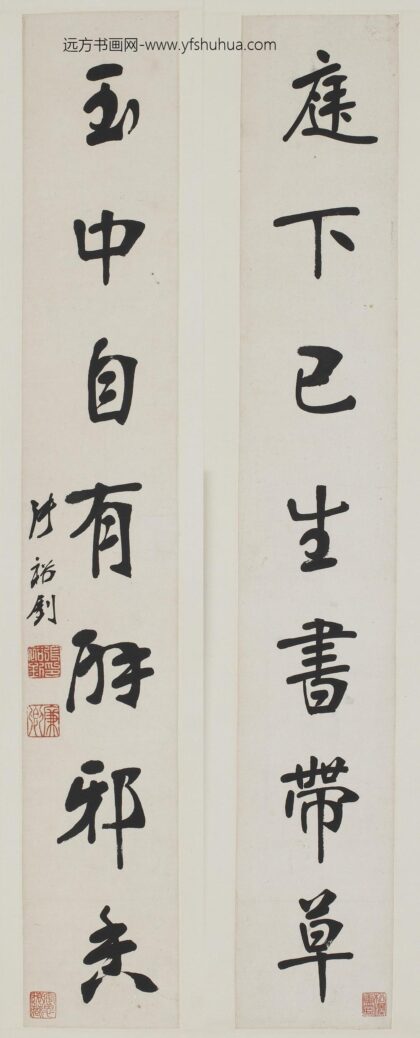 远方书画网-www.yfshuhua.com
庭下已生書帶草
玉中自有辟邪香
張裕釗
廉卿